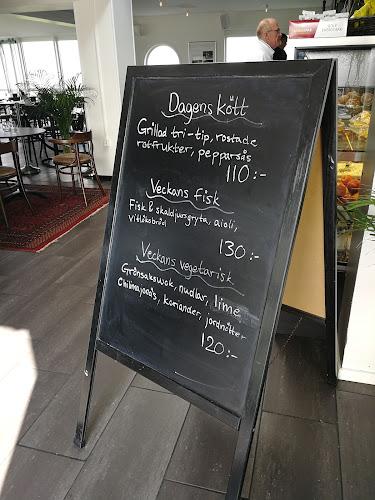 Dagens kött
Grillad tri-tip, rostade
rotfrukter, pepparsås
110:-
Veckans fisk
Fisk & skaldjursgryta, aioli,
vitlöksbröd
130:-
Veckans vegetarisk
Grönsakswok, nudlar, lime
Chilimajonäs, koriander, jordnötter
120:-